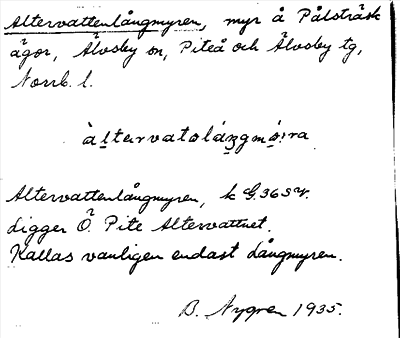 Altervattenlångmyren, myr å Pålsträsk
ägor, Älvsby sn, Piteå och Älvsby tg,
Norrb. l.
àltərvatəláŋgmó̤:ra
Altervattenlångmyren, k G.36S
Ligger Ö. Pite Altervattnet.
Kallas vanligen endast Långmyren.
B. Nygren 1935.